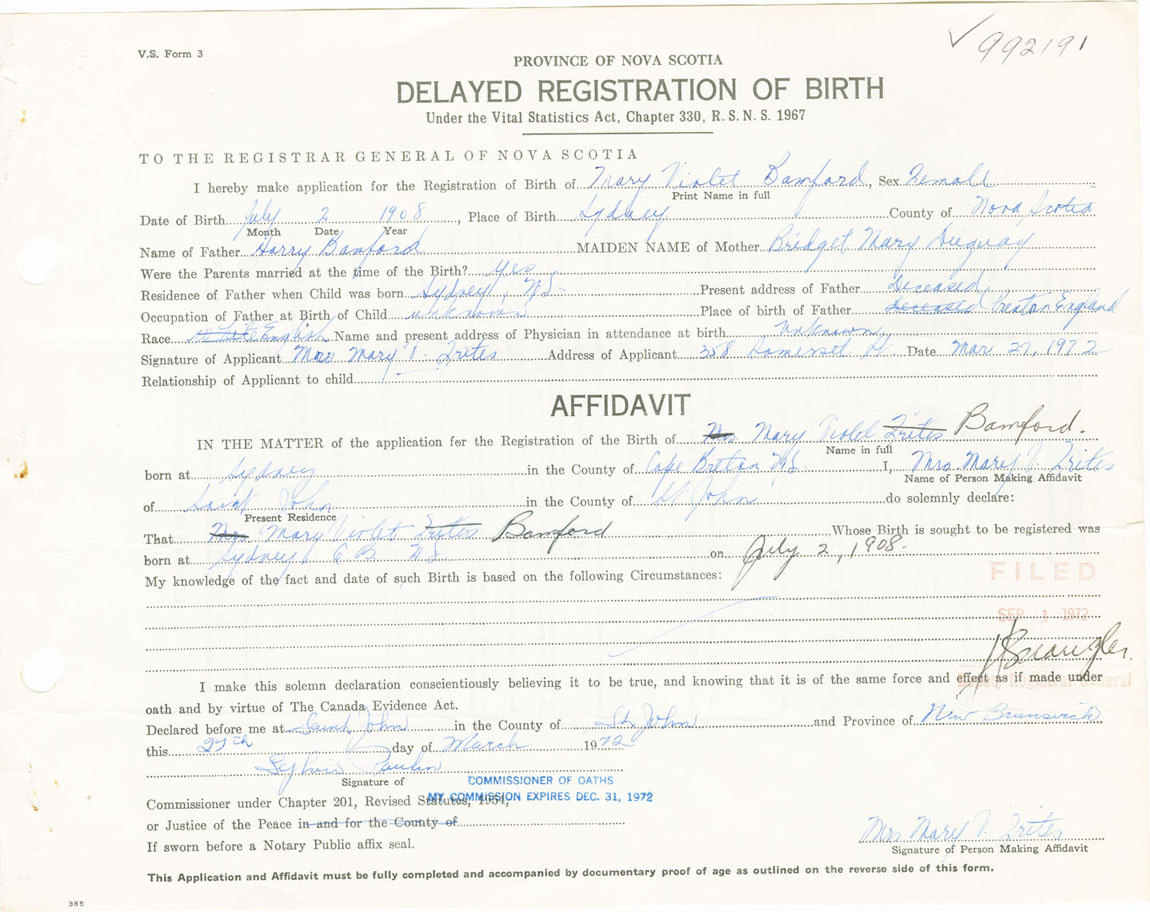 V.S. Form 3
992191
PROVINCE OF NOVA SCOTIA
DELAYED REGISTRATION OF BIRTH
Under the Vital Statistics Act, Chapter 330, R. S. N. S. 1967
TO THE REGISTRAR GENERAL OF NOVA SCOTIA
I hereby make application for the Registration of Birth of Mary Violet Bamford, Sex Female
Print Name in full
Date of Birth July 2 1908, Place of Birth Sydney County of Nova Scotia
Month Date Year
Name of Father Harry Bamford MAIDEN NAME of Mother Bridget Mary Duguay
Were the Parents married at the time of the Birth? yes
Residence of Father when Child was born Sydney, N.S. Present address of Father Deceased
Occupation of Father at Birth of Child unknown Place of birth of Father deceased Preston England
Race White English Name and present address of Physician in attendance at birth unknown
Signature of Applicant Mrs Mary V. Trites Address of Applicant 358 Somerset St. Date Mar 27, 1972
Relationship of Applicant to child
AFFIDAVIT
IN THE MATTER of the application for the Registration of the Birth of Mrs Mary Violet Trites Bamford.
Name in full
born at Sydney in the County of Cape Breton N.S. I, Mrs. Mary V. Trites
Name of Person Making Affidavit
of Saint John in the County of St John do solemnly declare:
Present Residence
That Mrs. Mary Violet Trites Bamford Whose Birth is sought to be registered was
born at Sydney, C B N.S on July 2, 1908.
My knowledge of the fact and date of such Birth is based on the following Circumstances:
FILED
SEP 1 1972
Registrar General
I make this solemn declaration conscientiously believing it to be true, and knowing that it is of the same force and effect as if made under
oath and by virtue of The Canada Evidence Act.
Declared before me at Saint John in the County of St. John and Province of New Brunswick
this 27th day of March 1972
Sylvia Paulin
Signature of
COMMISSIONER OF OATHS
MY COMMISSION EXPIRES DEC. 31, 1972
Commissioner under Chapter 201, Revised Statutes, 1954,
or Justice of the Peace in and for the County of
If sworn before a Notary Public affix seal.
Mrs Mary V. Trites
Signature of Person Making Affidavit
This Application and Affidavit must be fully completed and accompanied by documentary proof of age as outlined on the reverse side of this form.
385